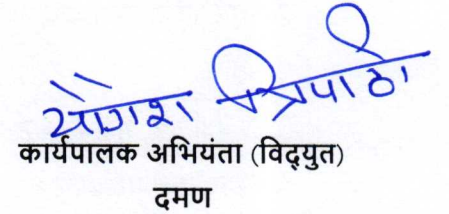 योगेश त्रिपाठी
कार्यपालक अभियंता (विद्युत)
दमण